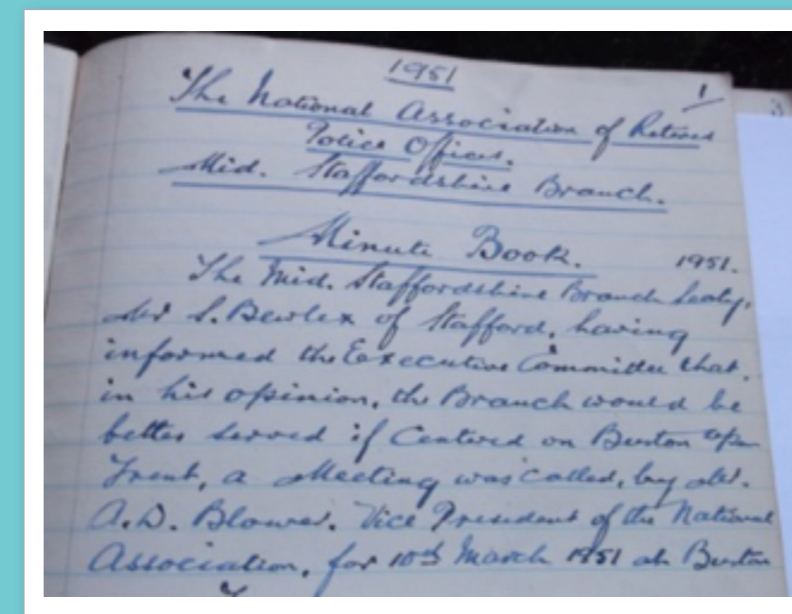 1951
1
The National Association of Retired
Police Officers.
Mid. Staffordshire Branch.
3
Minute Book. 1951.
The Mid. Staffordshire Branch Secty,
Mr S. of Stafford, having
informed the Executive Committee that,
in his opinion, the Branch would be
better served if Centered on Burton upon
Trent, a Meeting was called, by Mr.
A.D. Blower. Vice President of the National
Association, for 10th March 1951 at Burton